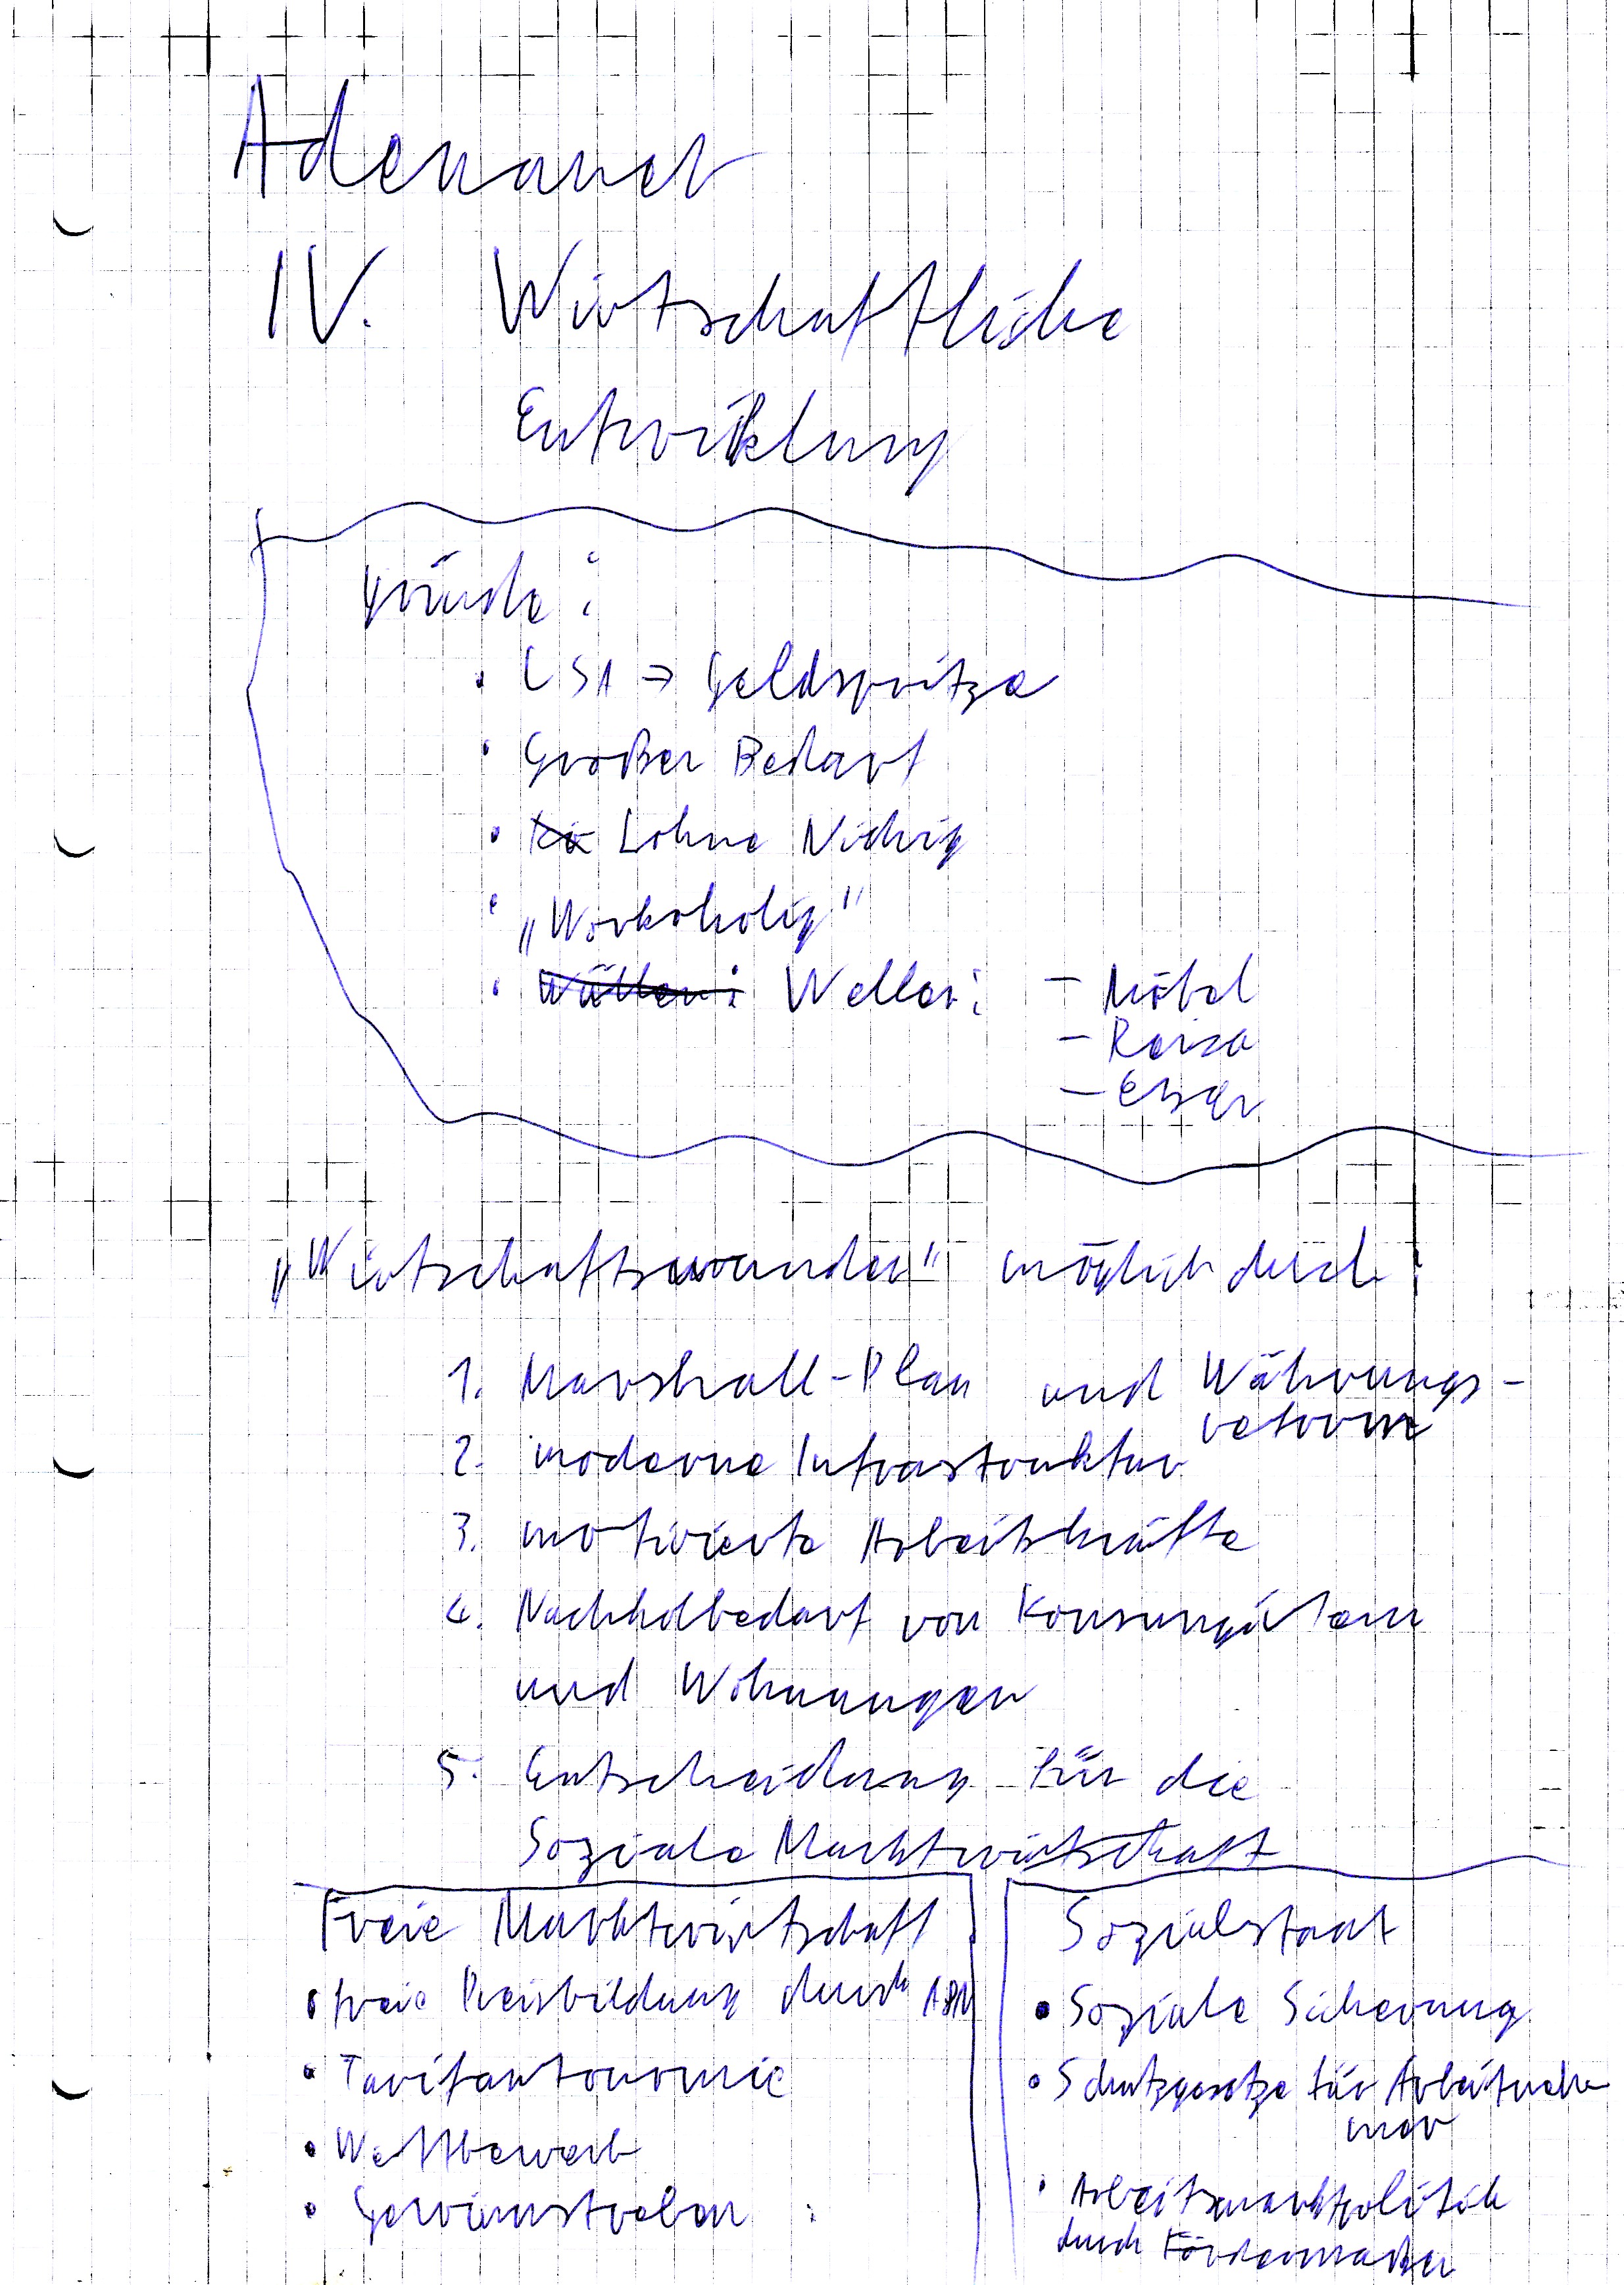 Adenauer
IV. Wirtschaftliche
Entwicklung
Gründe:
• USA → Geldspritze
• Großer Bedarf
• Löhne Niedrig
• „Workoholig"
• Wellen: - Möbel
- Reise
- Essen
„Wirtschaftswunder" möglich durch
1. Marshall-Plan und Währungs-
reform
2. moderne Infrastruktur
3. motivierte Arbeitskräfte
4. Nachholbedarf von Konsumgütern
und Wohnungen
5. Entscheidung für die
Soziale Marktwirtschaft
Freie Marktwirtschaft
• freie Preisbildung durch A&N
• Tarifautonomie
• Wettbewerb
• Gewinnstreben
Sozialstaat
• Soziale Sicherung
• Schutzgesetze für Arbeitneh
mer
• Arbeitsmarktpolitik
durch Fördermaßn